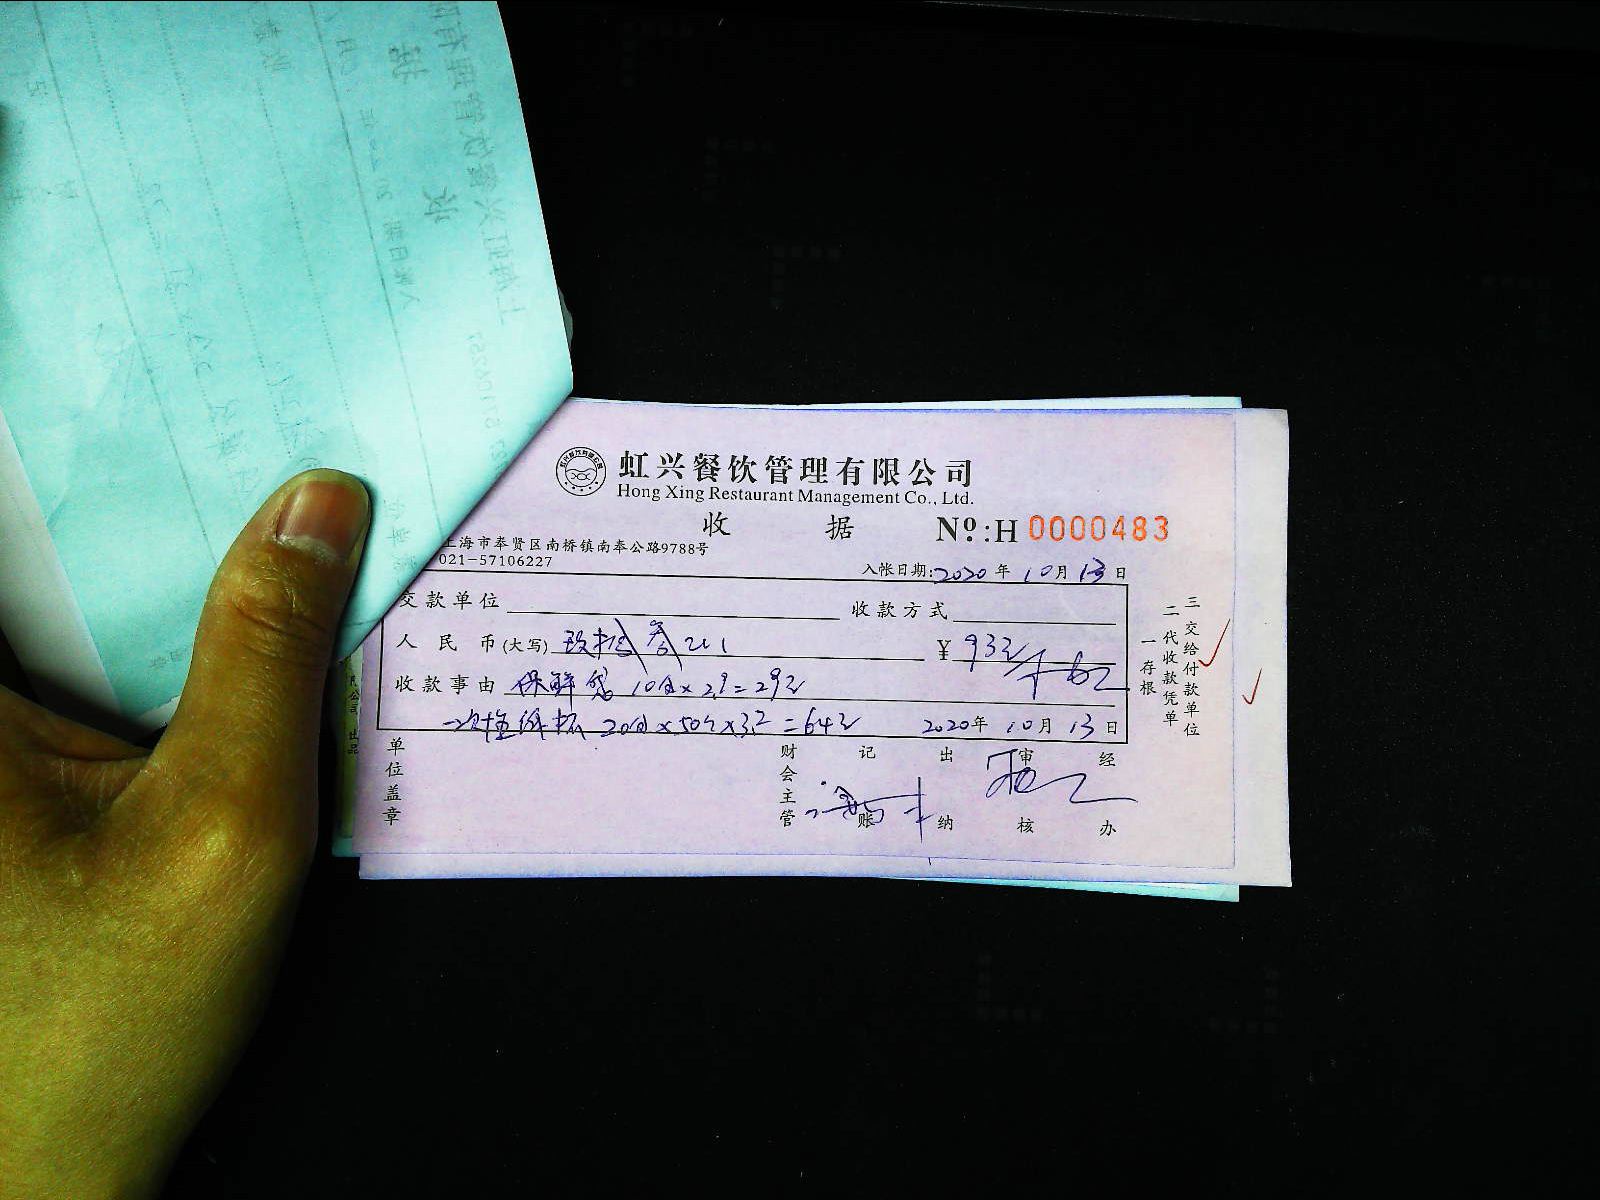 虹兴餐饮管理有限公司
Hong Xing Restaurant Management Co., Ltd.
收 据 Nº.:H 0000483
上海市奉贤区南桥镇南奉公路9788号
021-57106227
入帐日期:2020年10月13日
交款单位 收款方式
人民币(大写) 玖拾叁元 ¥ 93元
收款事由 保鲜袋 10包×2.9=29元
一次性纸杯 20包×50个×3.2=64元 2020年10月13日
单位盖章 财会主管 记账 出纳 审核 经办
一存根
二代收款凭单
三交给付款单位